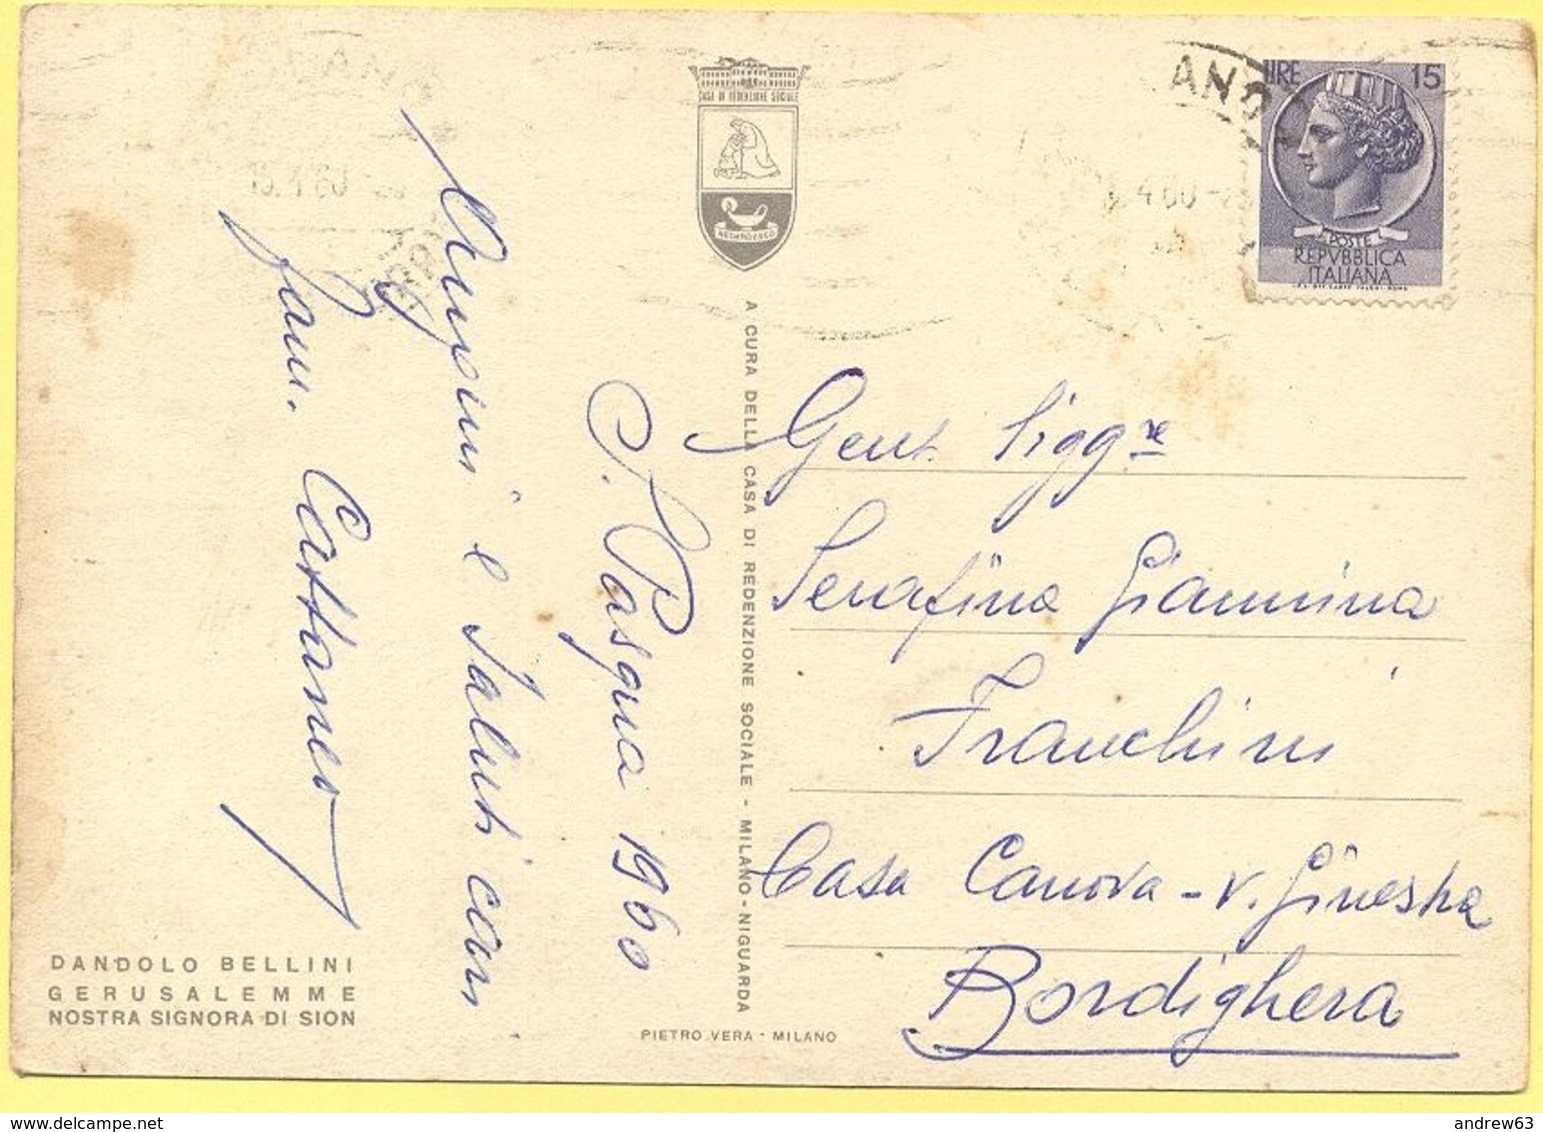 CASA DI REDENZIONE SOCIALE
MILANO
15.4.60
ANO
4.60
LIRE 15
POSTE
REPVBBLICA
ITALIANA
S. Pasqua 1960
Auguri e saluti cari
fam. Cattaneo
Gent. Sigg.re
Serafina Giannina
Franchini
Casa Canova - v. Ginestra
Bordighera
A CURA DELLA CASA DI REDENZIONE SOCIALE - MILANO - NIGUARDA
DANDOLO BELLINI
GERUSALEMME
NOSTRA SIGNORA DI SION
PIETRO VERA - MILANO
andrew63
delcampe.net